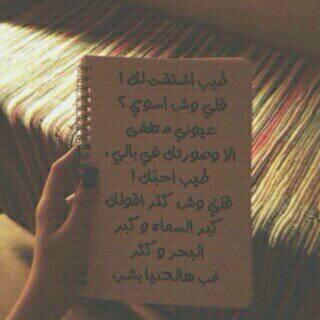 طيب اشتقت لك !
قلي وش اسوي ؟
عيوني م تغفى
الا وصورتك في بالي ،
طيب احبك !
قلي وش كثر اقولك
كبر السماء و كبر
البحر و كثر
مب هالدنيا بشر .